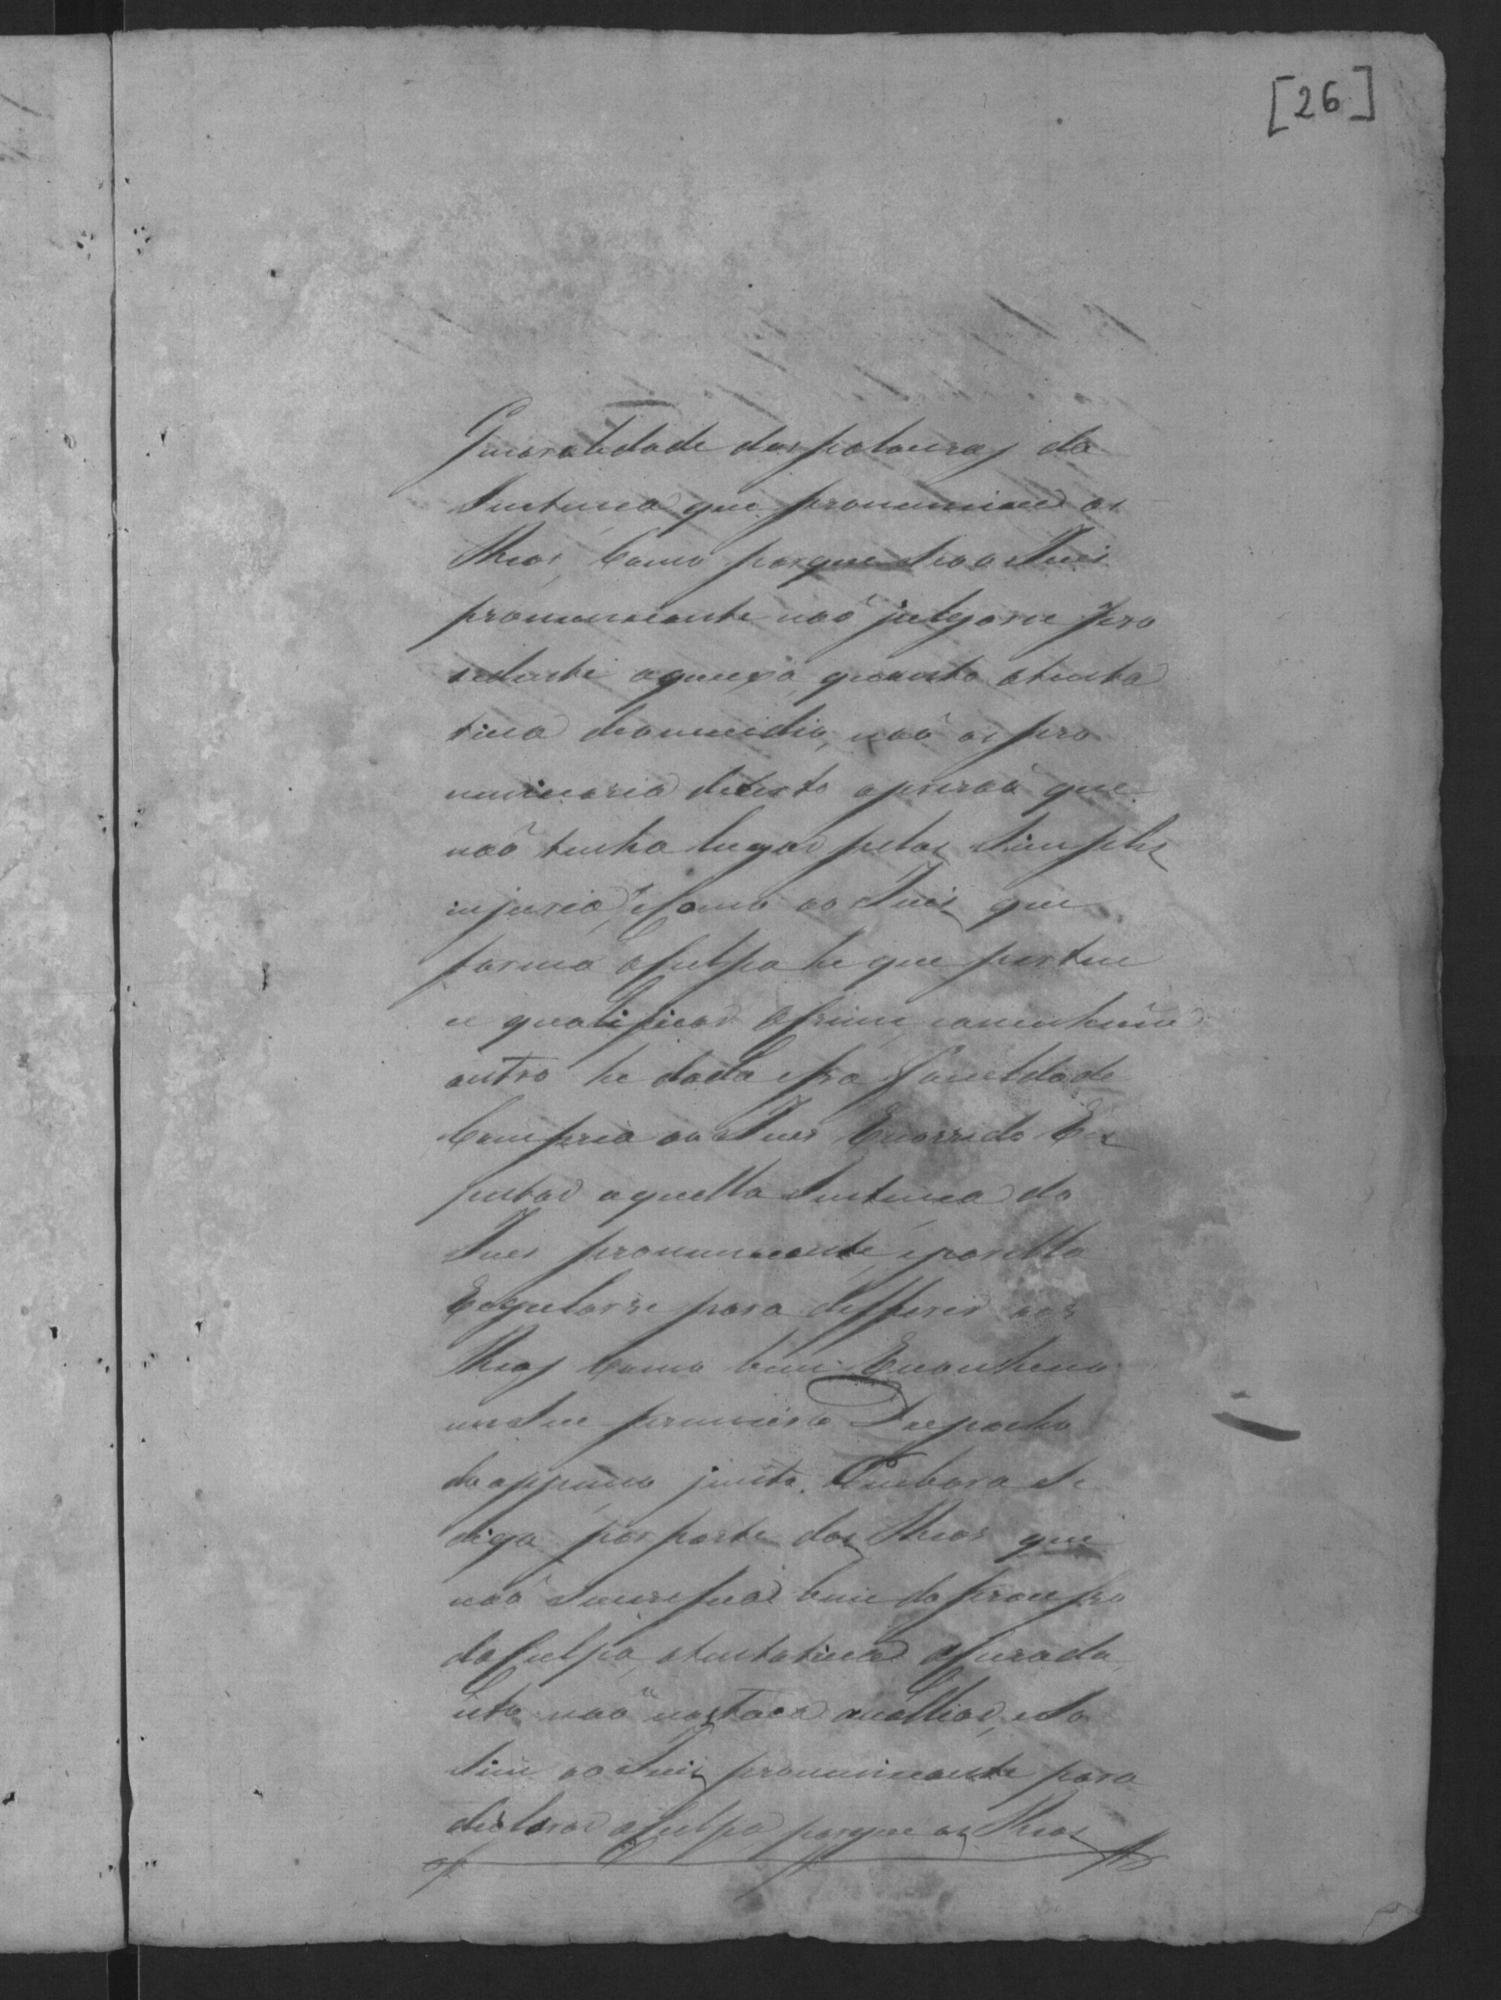 [26]
Generalidade das palavras da
Sentença que pronunciou os
Reos, Como porque se o Juis
pronunciante não julgasse pro
cedente aqueixa, quanto atenta
tiva deomicidio, não os pro
nunciaria decerto aprizão que
não tinha lugar pelas Simples
injurias, eComo ao Juis que
forma aCulpa he que perten
ce qualificar oCrime, eanenhum
outro he dada essa faculdade
Cumpria ao Juis Recorrido Res
peitar aquella Sentença do
Juis pronunciante, eporella
Regularse para defferir aos
Reos Como bem Reconheceo
no Seu primeiro Despacho
do appenso junto. Embora se
diga por parte dos Reos que
não Seacha bem do processo
da Culpa, atentativa aCusada,
isto não nos toca avalliar, e So
Sim ao Juis pronunciante para
declarar aCulpa porque os Reos